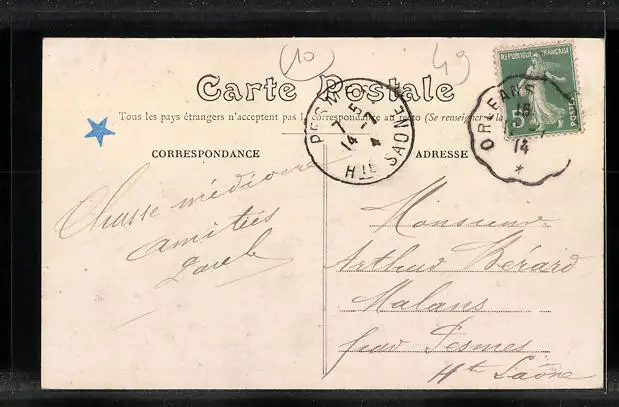 10
49
Carte Postale
Tous les pays étrangers n'acceptent pas la correspondance au recto (Se renseigner à la
REPUBLIQUE FRANÇAISE
5
POSTES
ORLEANS
14
*
PESMES
7 5
14 -7
4
Hte SAONE
CORRESPONDANCE
ADRESSE
Chasse médiocre
amitiés
Monsieur
Arthur Bérard
Malans
par Pesmes
Hte Saône